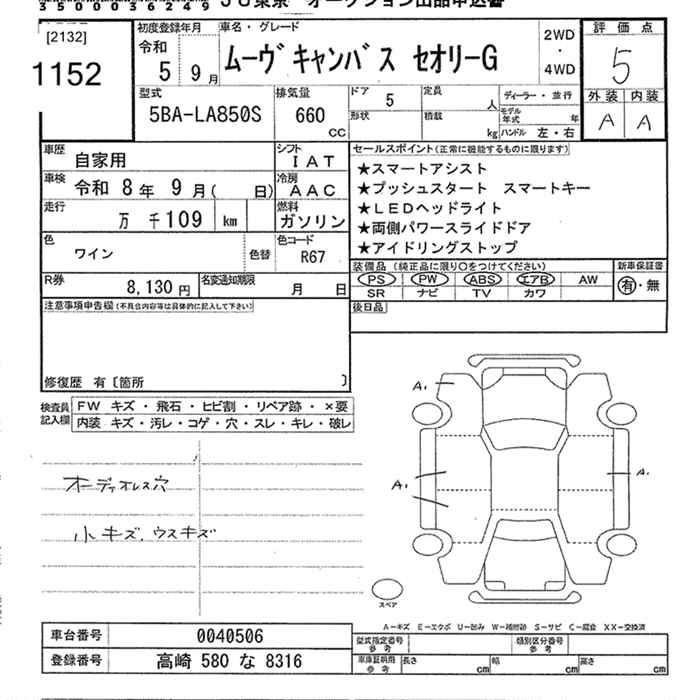 350000356249 JU東京 オークション出品申込書
[2132]
1152
初度登録年月
令和
5 9月
車名・グレード
ムーヴキャンバス セオリーG
2WD
・
4WD
評価点
5
外装 内装
A A
型式
5BA-LA850S
排気量
660
CC
ドア 5
形状
定員 人
積載 kg
ディーラー・並行
モデル年式 年
ハンドル 左・右
車歴
自家用
シフト
IAT
車検
令和 8年 9月( 日)
冷房
AAC
走行
万 千109 km
燃料
ガソリン
色
ワイン
色替
色コード
R67
R券
8,130円
名変通知期限
月 日
セールスポイント(正常に機能するものに限ります)
★スマートアシスト
★プッシュスタート スマートキー
★LEDヘッドライト
★両側パワースライドドア
★アイドリングストップ
装備品(純正品に限り○をつけてください)
PS PW ABS エアB AW
SR ナビ TV カワ
新車保証書
有・無
後日品
注意事項申告欄(不具合内容等は具体的に記入して下さい)
修復歴 有〔箇所 〕
検査員
記入欄
FW キズ・飛石・ヒビ割・リペア跡・×要
内装 キズ・汚レ・コゲ・穴・スレ・キレ・破レ
オーディオレス穴
小キズ、ウスキズ
A1
A1
A1
スペア
A−キズ E−エクボ U−凹み W−補修跡 S−サビ C−腐食 XX−交換済
車台番号 0040506
登録番号 高崎 580 な 8316
型式指定番号
参考
類別区分番号
参考
車庫証明用
参考
長さ cm 幅 cm 高さ cm